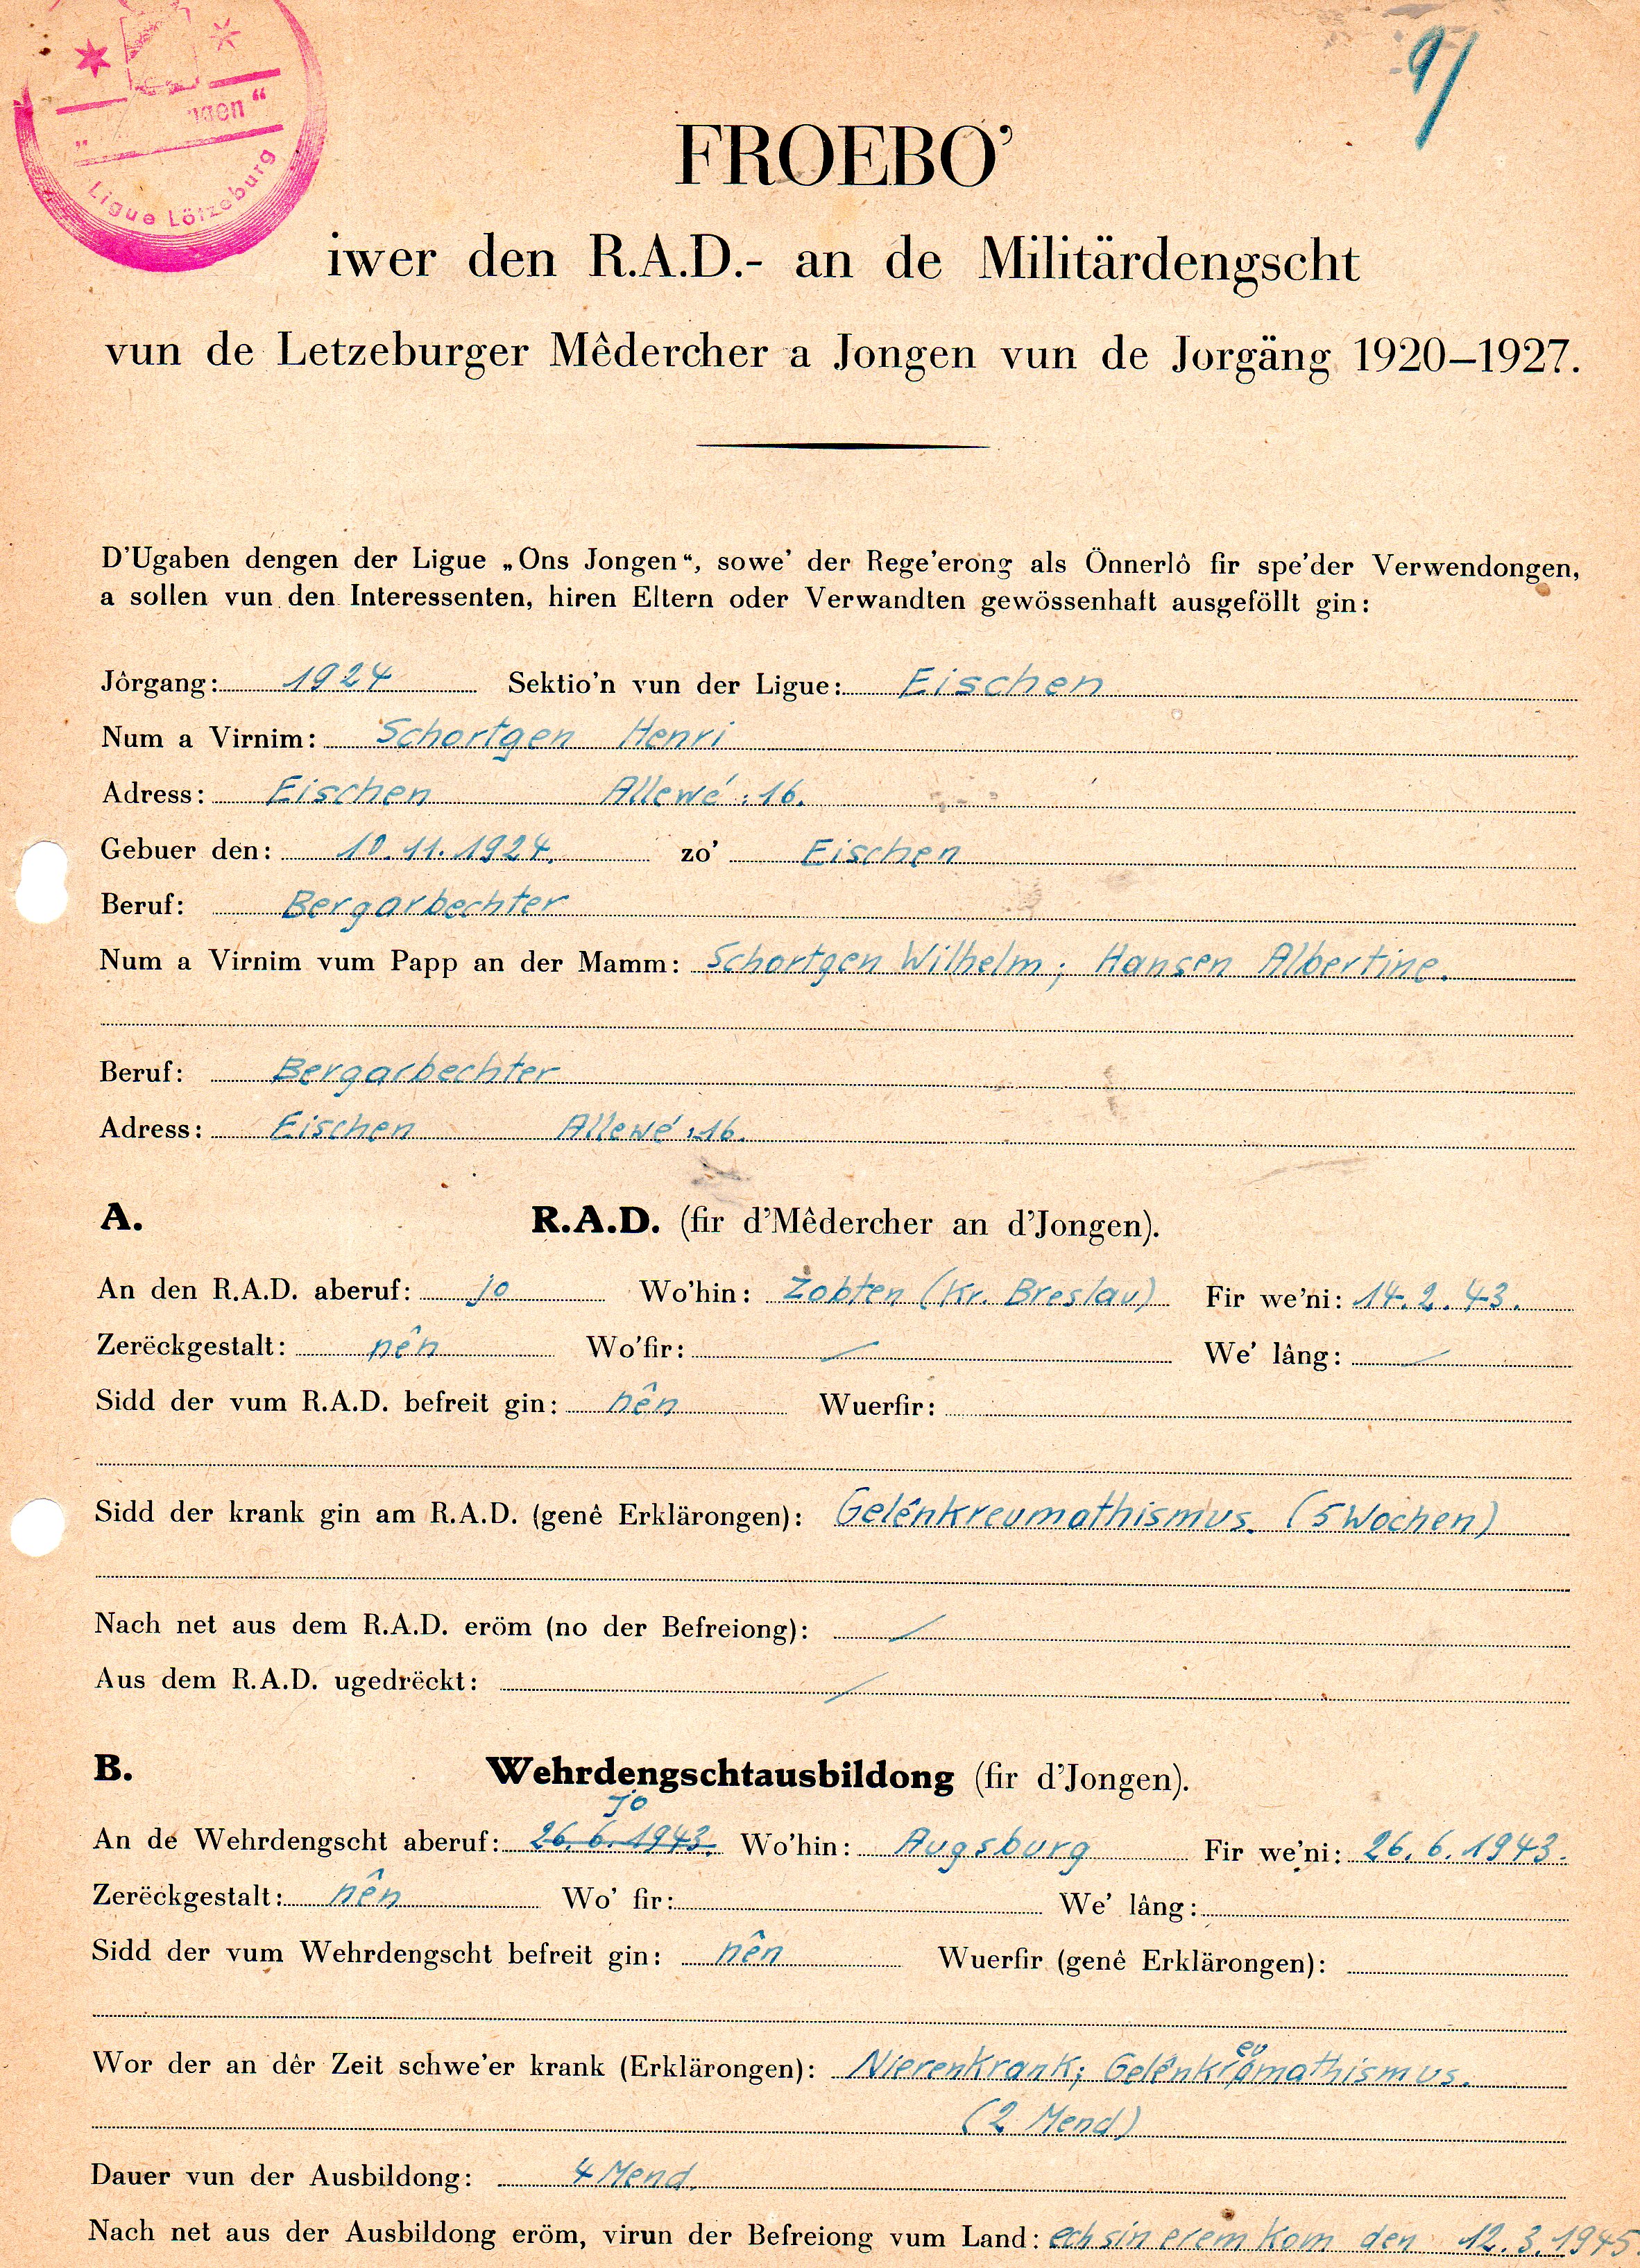 9/
" ngen "
Ligue Lötzeburg
FROEBO'
iwer den R.A.D.- an de Militärdengscht
vun de Letzeburger Mêdercher a Jongen vun de Jorgäng 1920–1927.
D'Ugaben dengen der Ligue „Ons Jongen“, sowe' der Rege'erong als Önnerlô fir spe'der Verwendongen,
a sollen vun den Interessenten, hiren Eltern oder Verwandten gewössenhaft ausgeföllt gin:
Jôrgang: 1924 Sektio'n vun der Ligue: Eischen
Num a Virnim: Schortgen Henri
Adress: Eischen Allewé: 16.
Gebuer den: 10.11.1924. zo' Eischen
Beruf: Bergarbechter
Num a Virnim vum Papp an der Mamm: Schortgen Wilhelm; Hansen Albertine.
Beruf: Bergarbechter
Adress: Eischen Allewé: 16.
A. R.A.D. (fir d'Mêdercher an d'Jongen).
An den R.A.D. aberuf: jo Wo'hin: Zobten (Kr. Breslau) Fir we'ni: 14.2.43.
Zerëckgestalt: nên Wo'fir: / We' lâng: /
Sidd der vum R.A.D. befreit gin: nên Wuerfir:
Sidd der krank gin am R.A.D. (genê Erklärongen): Gelênkreumathismus. (5 Wochen)
Nach net aus dem R.A.D. eröm (no der Befreiong): /
Aus dem R.A.D. ugedrëckt: /
B. Wehrdengschtausbildong (fir d'Jongen).
Jo
An de Wehrdengscht aberuf: 26.6.1943. Wo'hin: Augsburg Fir we'ni: 26.6.1943.
Zerëckgestalt: nên Wo' fir: We' lâng:
Sidd der vum Wehrdengscht befreit gin: nên Wuerfir (genê Erklärongen):
Wor der an dêr Zeit schwe'er krank (Erklärongen): Nierenkrank; Gelênkreumathismus.
(2 Mend)
Dauer vun der Ausbildong: 4 Mend.
Nach net aus der Ausbildong eröm, virun der Befreiong vum Land: ech sin erem kom den 12.3.1945